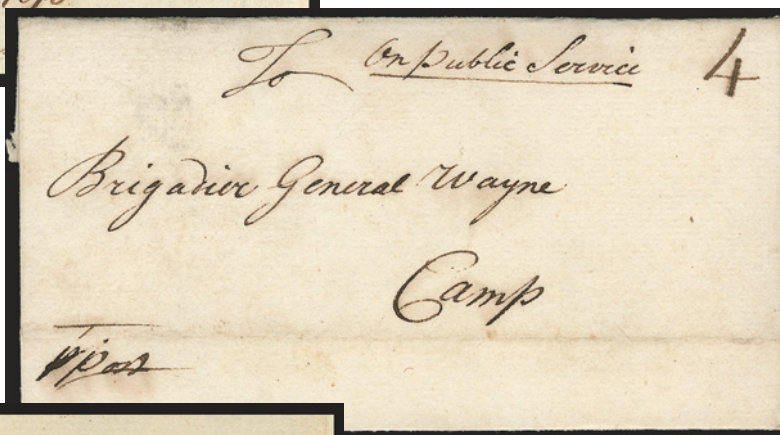 To On public Service 4
Brigadier General Wayne
Camp
pr post